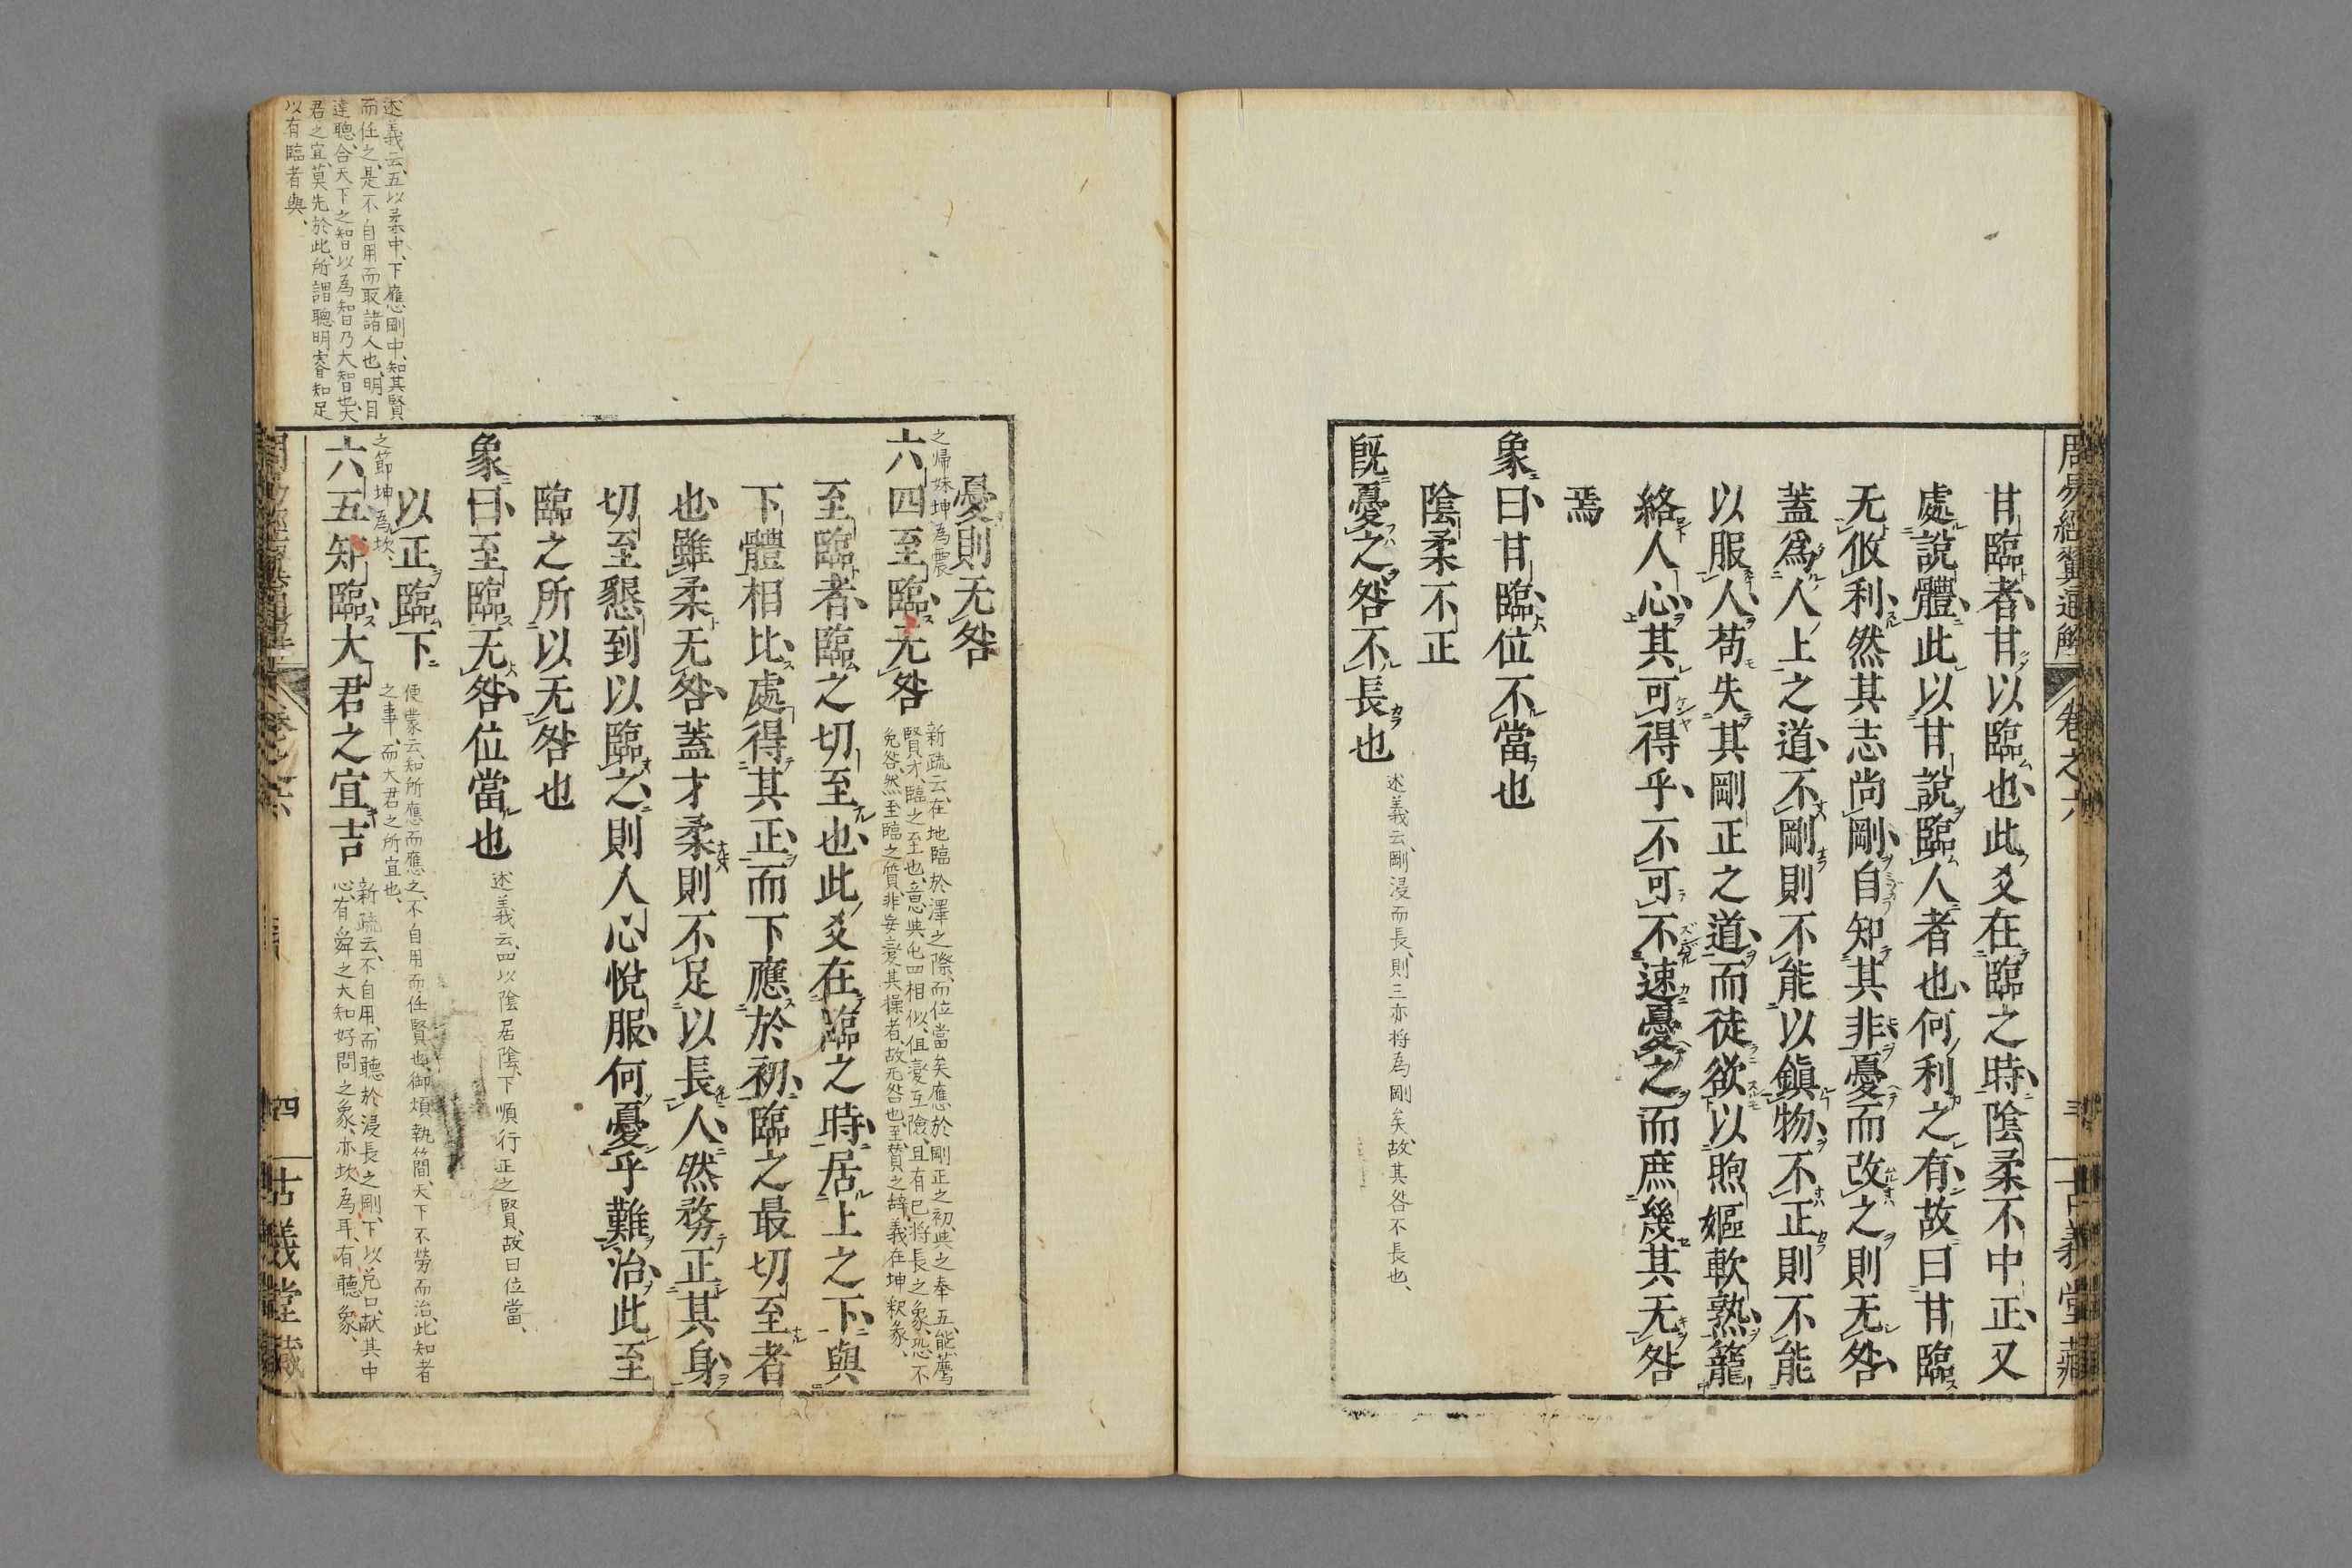 周易經翼通解 卷之六 三 古義堂藏
甘臨者甘以臨也此爻在臨之時陰柔不中正又
處說體此以甘說臨人者也何利之有故曰甘臨
无攸利然其志尚剛自知其非憂而改之則无咎
蓋爲人上之道不剛則不能以鎭物不正則不能
以服人苟失其剛正之道而徒欲以煦嫗軟熟籠
絡人心其可得乎不可不速憂之而庶幾其无咎
焉
象曰甘臨位不當也
陰柔不正
既憂之咎不長也
述義云、剛浸而長、則三亦将為剛矣、故其咎不長也、
憂則无咎
之帰妹坤為震
六四至臨无咎
新疏云、在地臨於澤之際、而位當矣應於剛正之初、與之奉五、能薦
賢才、臨之至也、意與屯四相似、但變互險、且有已將長之象、恐不
免咎、然至臨之質、非妄変其操者、故无咎也、至、賛之辞、義在坤釈象、
至臨者臨之切至也此爻在臨之時居上之下與
下體相比處得其正而下應於初臨之最切至者
也雖柔无咎蓋才柔則不足以長人然務正其身
切至懇到以臨之則人心悅服何憂乎難治此至
臨之所以无咎也
象曰至臨无咎位當也
述義云、四以陰居陰、下順行正之賢、故曰位當、
以正臨下
便蒙云、知所應而應之、不自用而任賢也、御煩執簡、天下不勞而治、此知者
之事、而大君之所宜也、
之節坤為坎、
六五知臨大君之宜吉
新疏云、不自用、而聽於浸長之剛、下以兌口献其中
心、有舜之大知好問之象、亦坎為耳、有聽象、
述義云、五以柔中、下應剛中、知其賢
而任之、是不自用而取諸人也、明目
達聰、合天下之知以為知、乃大智也、大
君之宜、莫先於此、所謂聰明睿知足
以有臨者與、
卷之六 四 古義堂藏